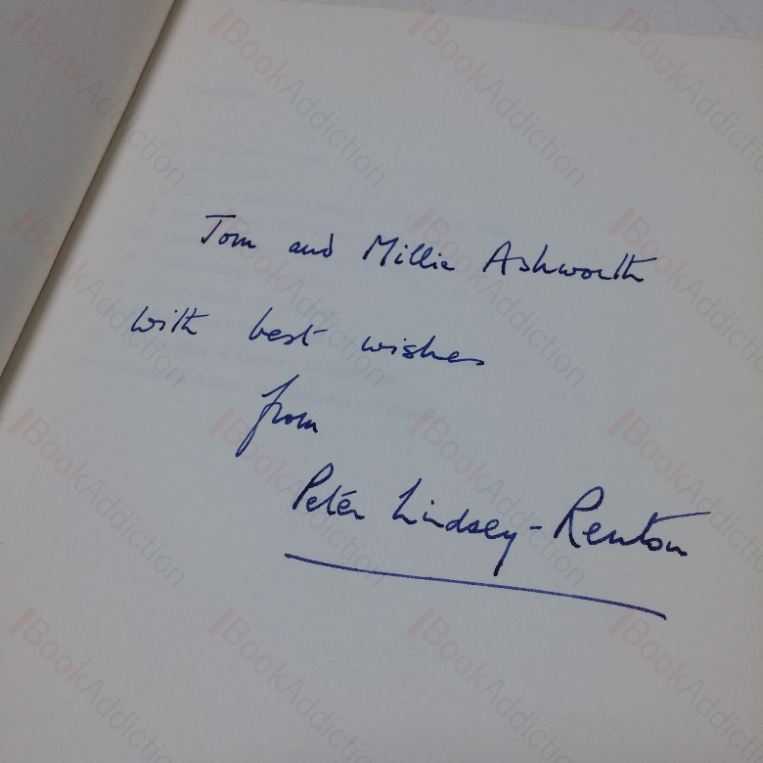 Tom and Millie Ashworth
with best wishes
from
Peter Lindsey-Renton
BookAddiction